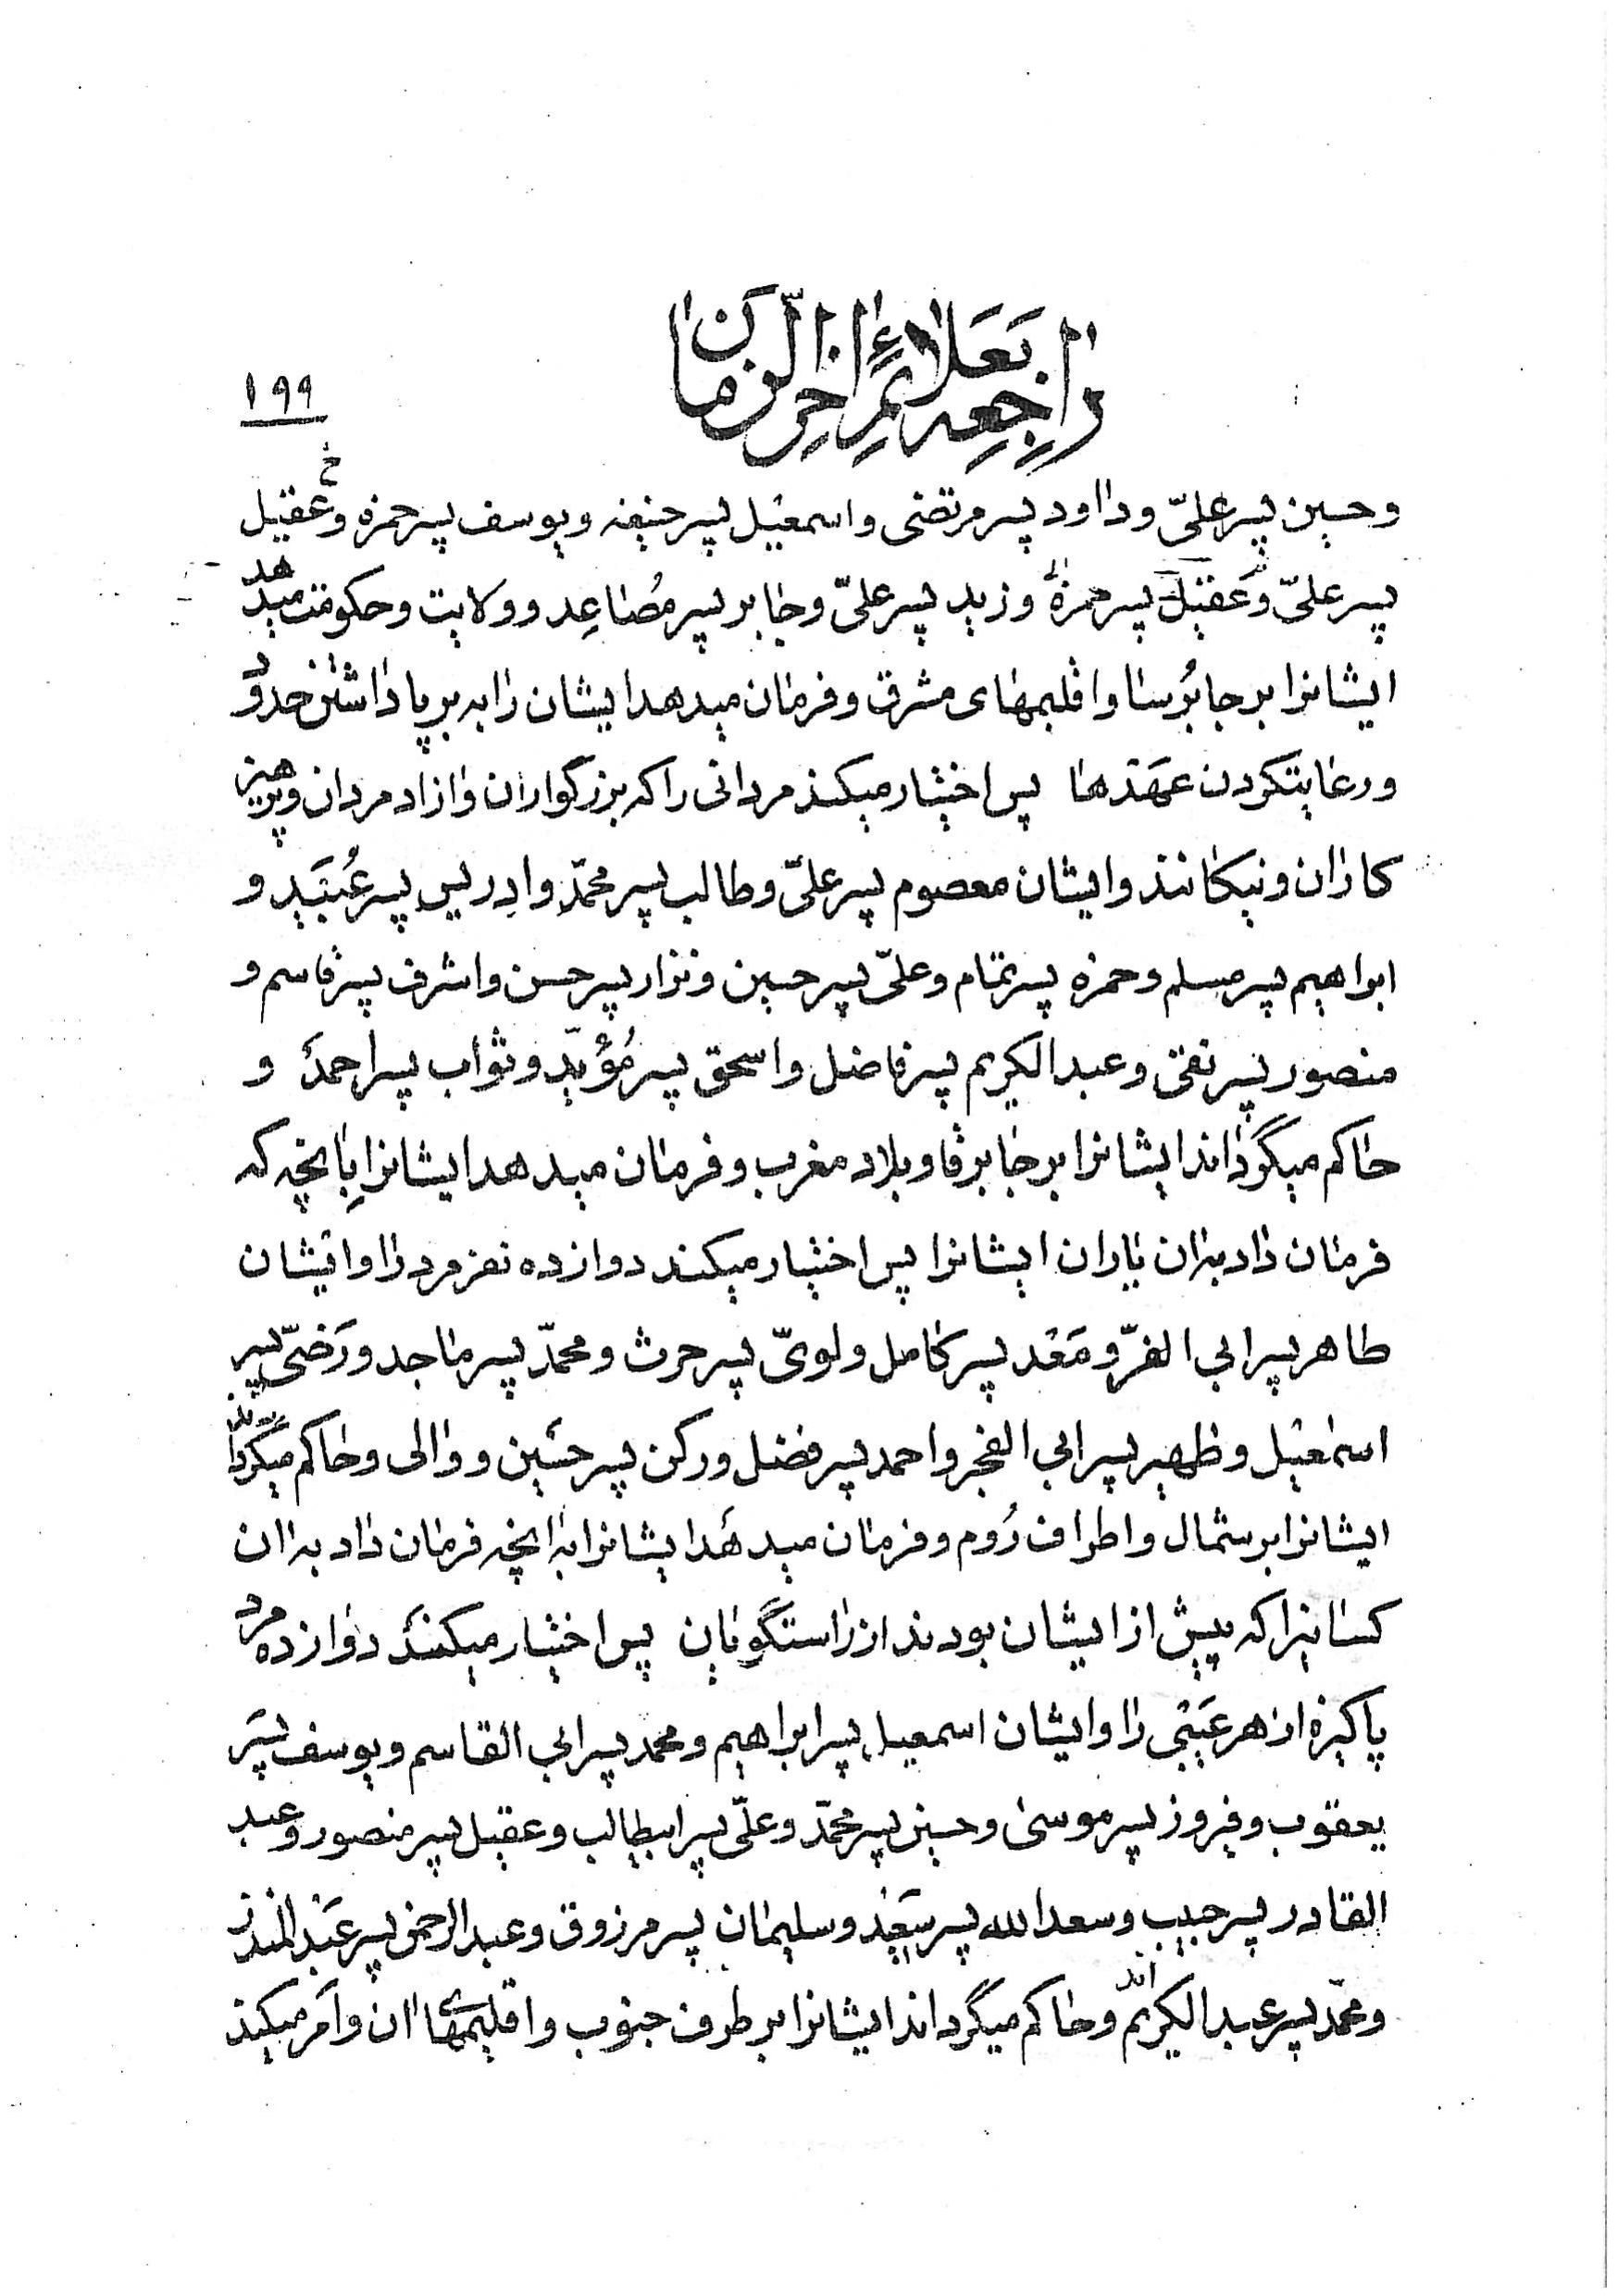 راجعه بعلائم اخر الزمان
۱۹۹
وحسین پسر علیّ وداود پسر مرتضی واسمعیل پسر حنیفه ویوسف پسر حمزه وعقیل
پسر علیّ وعَقیل پسر حمزة وزید پسر علیّ وجابر پسر مُصاعِد وولایت وحکومت میدهد
ایشانرا بر جابُرسا واقلیمهای مشرق وفرمان میدهد ایشان را به برپا داشتن حدود
ورعایتکردن عهدها پس اختیار میکند مردانی راکه بزرگواران وازاد مردان وپرهیز
کاران ونیکانند وایشان معصوم پسر علیّ وطالب پسر محمّد وادِریس پسر عُبَید و
ابراهیم پسر مسلم وحمزه پسر تمام وعلیّ پسر حسین ونزار پسر حسن واشرف پسر قاسم و
منصور پسر تقی وعبد الکریم پسر فاضل واسحق پسر مُؤیّد وثواب پسر احمد و
حاکم میگرداند ایشانرا بر جابرقا وبلاد مغرب وفرمان میدهد ایشانرا بِانچه که
فرمان داد بدان یاران ایشانرا پس اختیار میکند دوازده نفر مرد را وایشان
طاهر پسر ابی الفرّ ومَعْد پسر کامل ولویّ پسر حرث ومحمّد پسر ماجد ورَضیّ پسر
اسمعیل وظهیر پسر ابی الفجر واحمد پسر فضل ورکن پسر حسین ووالی وحاکم میگرداند
ایشانرا بر شمال واطراف رُوم وفرمان میدهد ایشانرا بدانچه فرمان داد بدان
کسانیرا که پیش از ایشان بودند از راستگویان پس اختیار میکند دوازده مرد
پاکیزه از هر عَیْبی را وایشان اسمعیل پسر ابراهیم ومحمد پسر ابی القاسم ویوسف پسَر
یعقوب وفیروز پسر موسی وحسین پسر محمّد وعلّی پسر ابیطالب وعقیل پسر منصور وعبد
القادر پسر حبیب وسعد الله پسر سَعید وسلیمان پسر مرزوق وعبد الرحمن پسر عَبْد المنذر
ومحمّد پسر عبد الکریم وحاکم میگرداند ایشانرا بر طرف جنوب واقلیمهای ان وامر میکند